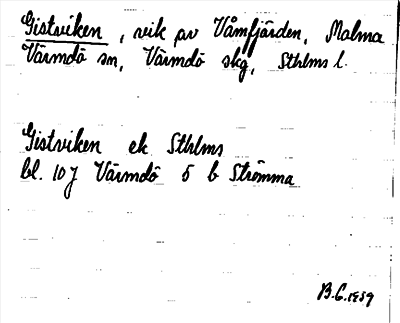 Gistviken, vik av Våmfjärden, Malma
Värmdö sn, Värmdö skg, Sthlms l.
Gistviken ek Sthlms
bl. 10 J Värmdö 5 b Strömma
B.G. 1939